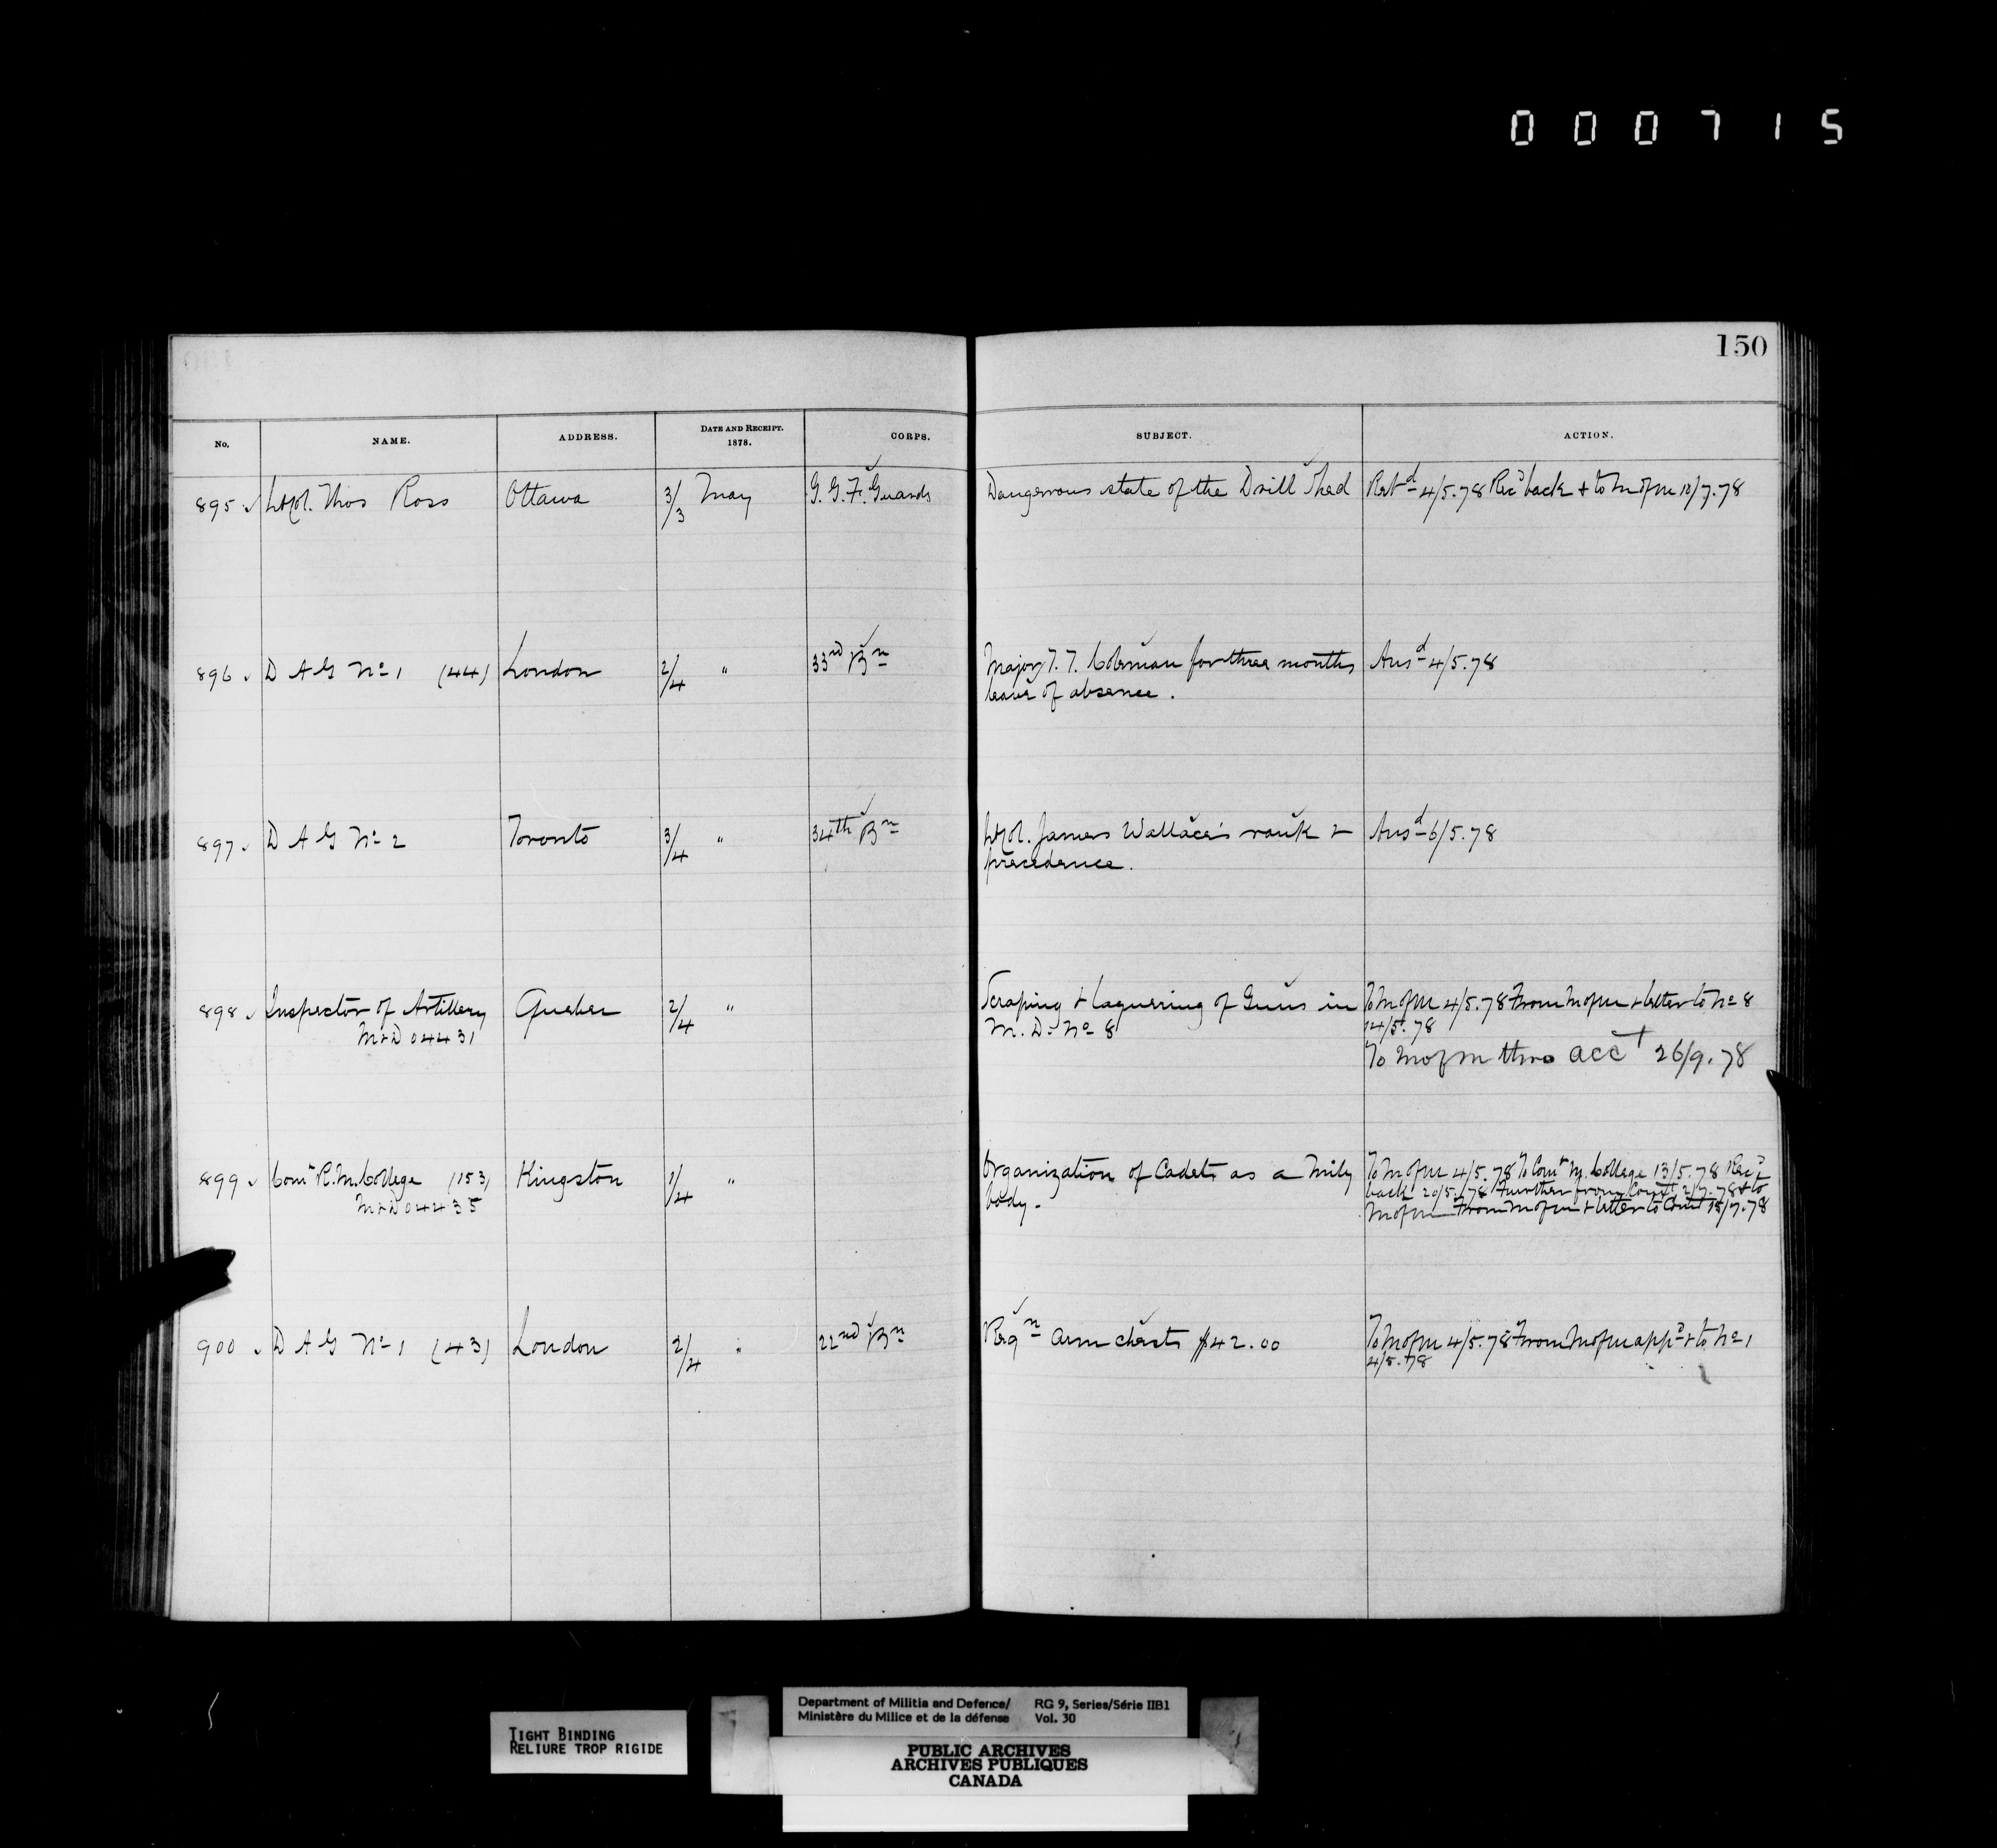 000715
150
No. NAME. ADDRESS. DATE AND RECEIPT. 1878. CORPS. SUBJECT. ACTION.
895 Lt Col. Thos Ross Ottawa 3/3 May G. G. F. Guards Dangerous state of the Drill Shed Retd 4/5.78 Recd back + to M of M 10/7.78
896 D A G No 1 (44) London 2/4 " 33rd Bn Major T. T. Coleman for three months Ansd 4/5.78
leave of absence.
897 D A G No 2 Toronto 3/4 " 34th Bn Lt Col. James Wallace's rank + Ansd 6/5.78
precedence.
898 Inspector of Artillery Quebec 2/4 " Scraping + laquering of Guns in To M of M 4/5.78 From M of M + letter to No 8
M + D 04431 M. D. No 8 14/5.78
To M of M thro acct 26/9.78
899 Comt R. M. College (153) Kingston 1/4 " Organization of Cadets as a Mily To M of M 4/5.78 To Comt M. College 13/5.78 Recd
M + D 04435 body. back 20/5.78 Further from Comt 2/7.78 + to
M of M From M of M + letter to Comt 15/7.78
900 D A G No 1 (43) London 2/4 " 22nd Bn Reqn arm chests $42.00 To M of M 4/5.78 From M of M appd + to No 1
4/5.78
TIGHT BINDING
RELIURE TROP RIGIDE
Department of Militia and Defence/ RG 9, Series/Série IIB1
Ministère du Milice et de la défense Vol. 30
PUBLIC ARCHIVES
ARCHIVES PUBLIQUES
CANADA